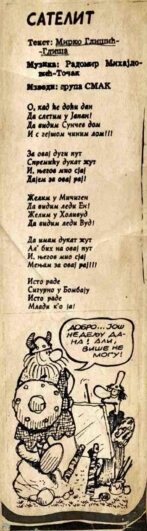 САТЕЛИТ
Текст: Мирко Глишић-
-Глиша
Музика: Радомир Михајло-
вић-Точак
Изводи: група СМАК
О, кад ће доћи дан
Да слетим у Јапан!
Да видим Сунчев дом
И с гејшом чиним лом!!!
За овај дуги пут
Спремићу дукат жут
И, његов мио сјај
Дајем за овај рај!
Желим у Мичиген
Да видим леди Ен!
Желим у Холивуд
Да видим леди Вуд!
Да имам дукат жут
Ал' бих на овај пут
И, његов мио сјај
Мењам за овај рај!!!
Исто раде
Сигурно у Бомбају
Исто раде
Млади к'о ја!
ДОБРО... ЈОШ
НЕДЕЉУ ДА-
НА! АЛИ,
ВИШЕ НЕ
МОГУ!